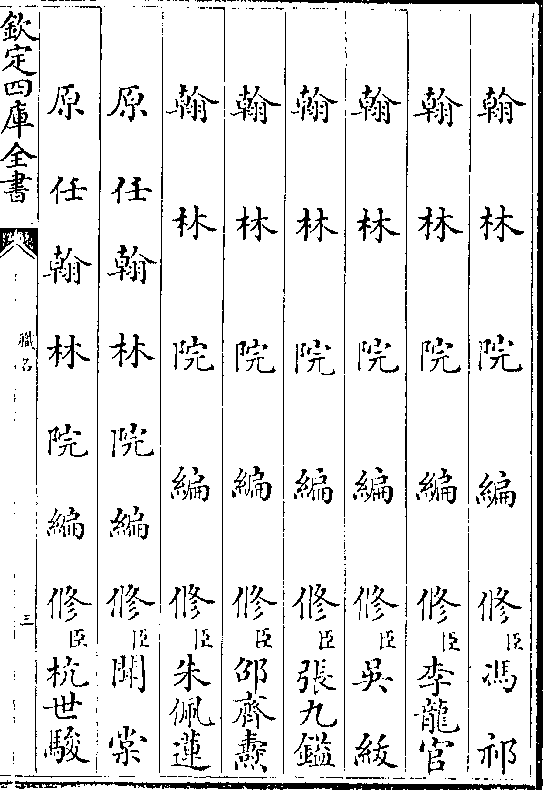 翰林院編修臣馮祁
翰林院編修臣李龍官
翰林院編修臣吳紱
翰林院編修臣張九鎰
翰林院編修臣邵齊燾
翰林院編修臣朱佩蓮
原任翰林院編修臣聞棠
原任翰林院編修臣杭世駿
欽定四庫全書
職名
三